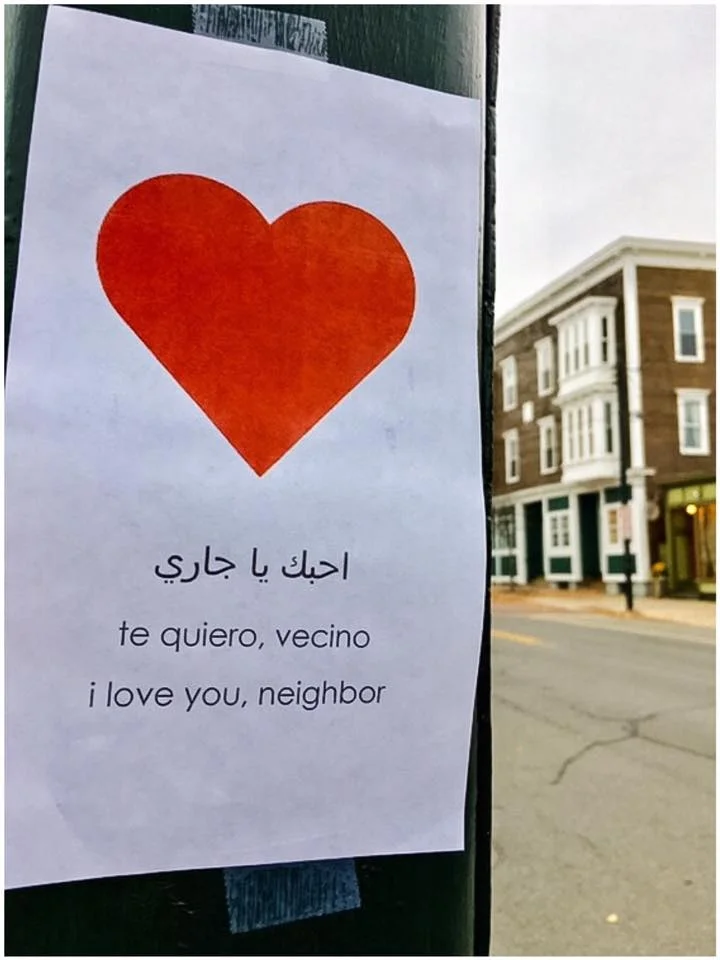 احبك يا جاري
te quiero, vecino
i love you, neighbor